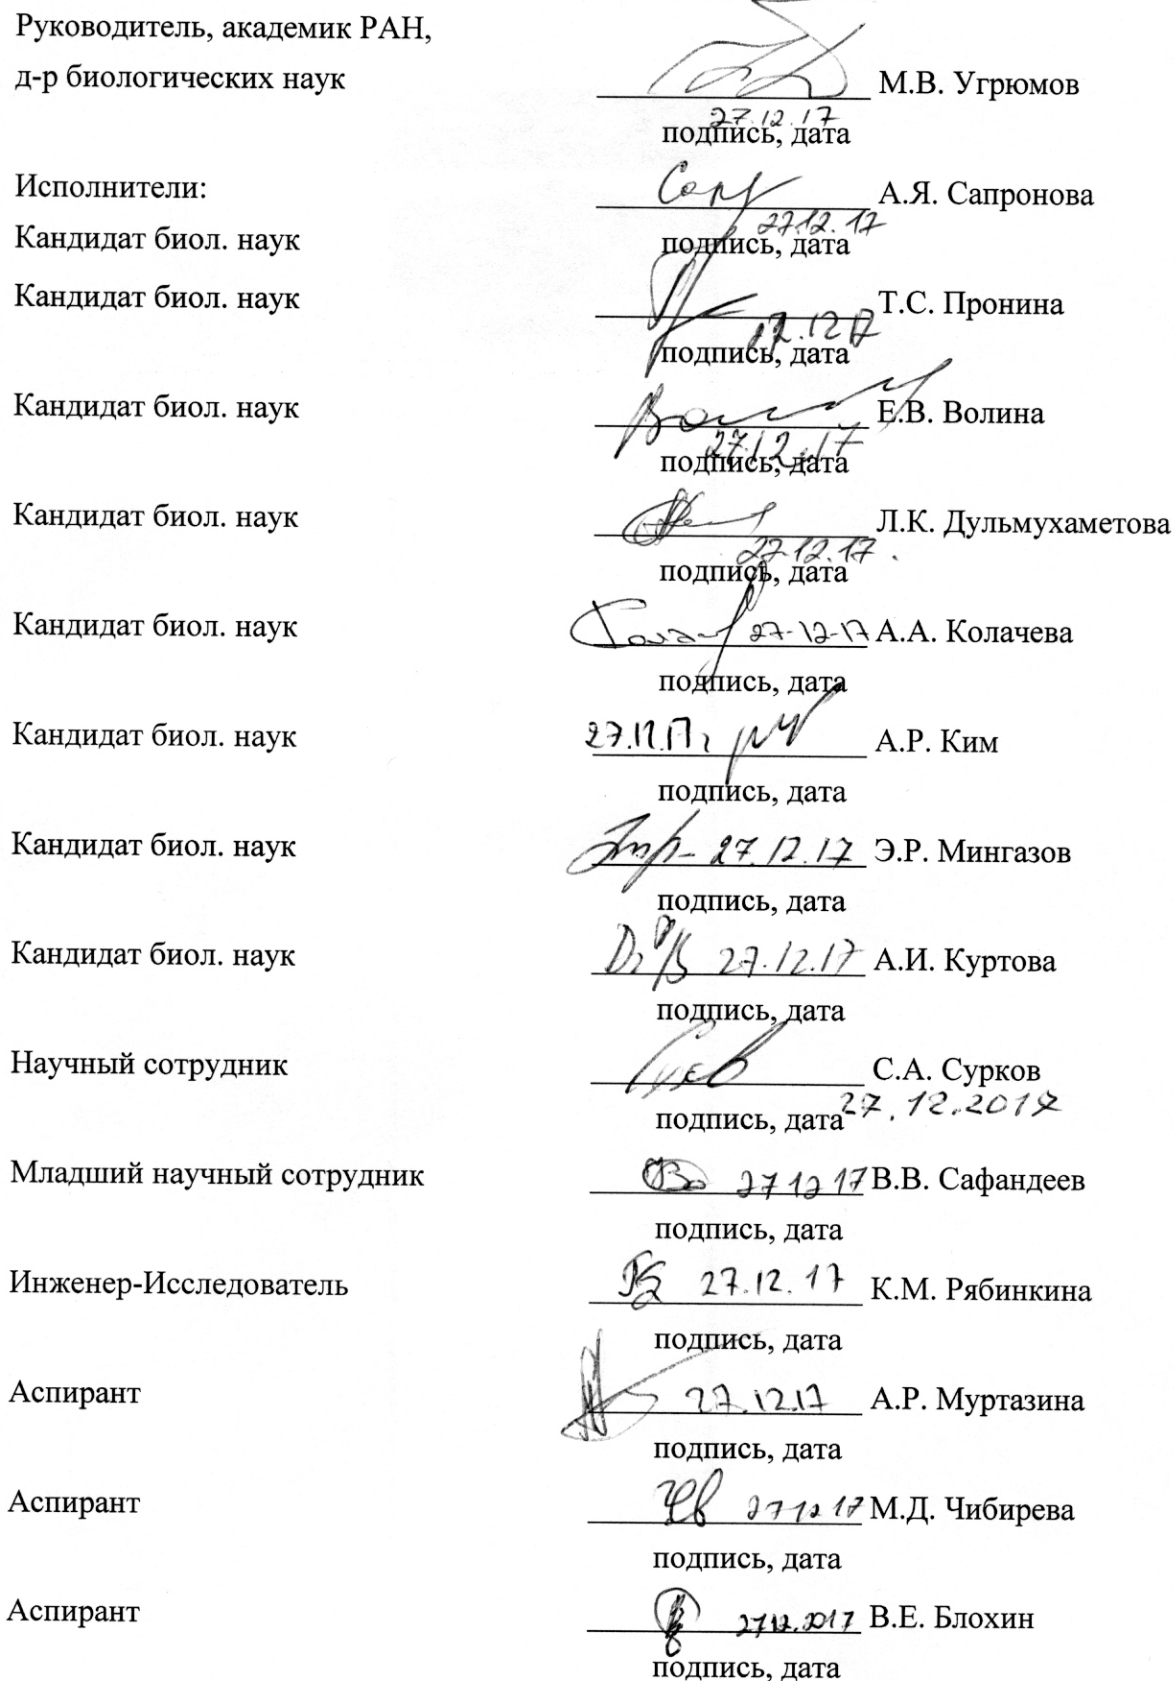 Руководитель, академик РАН,
д-р биологических наук М.В. Угрюмов
27.12.17
подпись, дата
Исполнители: А.Я. Сапронова
27.12.17
Кандидат биол. наук подпись, дата
Кандидат биол. наук Т.С. Пронина
подпись, дата
Кандидат биол. наук Е.В. Волина
27.12.17
подпись, дата
Кандидат биол. наук Л.К. Дульмухаметова
27.12.17.
подпись, дата
Кандидат биол. наук 27-12-17 А.А. Колачева
подпись, дата
Кандидат биол. наук А.Р. Ким
подпись, дата
Кандидат биол. наук 27.12.17 Э.Р. Мингазов
подпись, дата
Кандидат биол. наук 27.12.17 А.И. Куртова
подпись, дата
Научный сотрудник С.А. Сурков
подпись, дата 27.12.2017
Младший научный сотрудник 27 12 17 В.В. Сафандеев
подпись, дата
Инженер-Исследователь 27.12.17 К.М. Рябинкина
подпись, дата
Аспирант 27.12.17 А.Р. Муртазина
подпись, дата
Аспирант 27 12 17 М.Д. Чибирева
подпись, дата
Аспирант 27.12.2017 В.Е. Блохин
подпись, дата